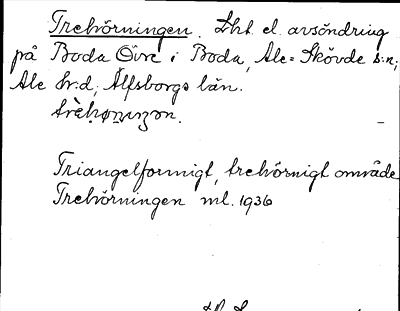 Trehörningen. Lht. el. avsöndring
på Boda Övre i Boda, Ale-Skövde s:n;
Ale hr:d, Älfsborgs län.
Triangelformigt, trehörnigt område
Trehörningen ml. 1936